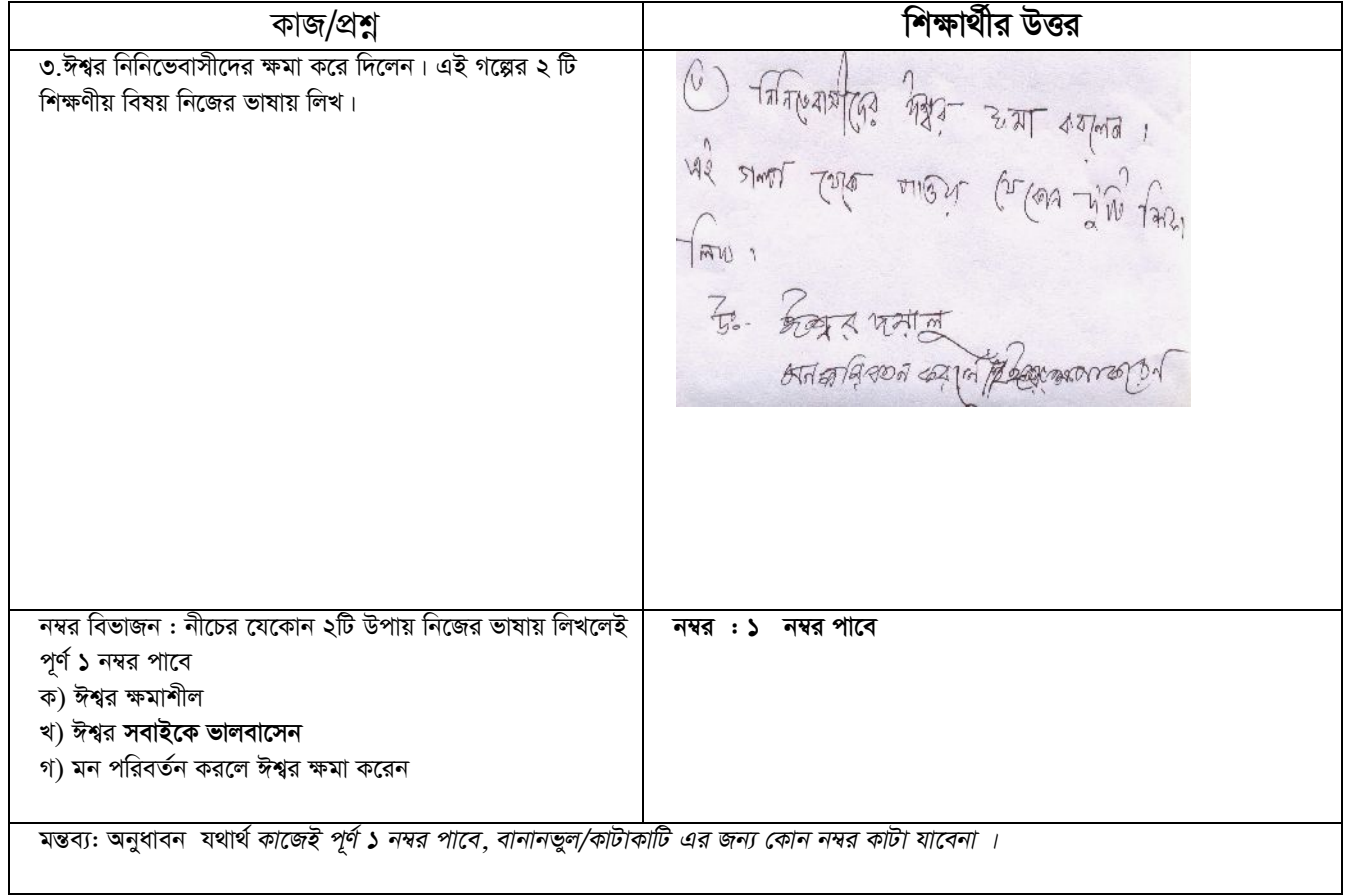 কাজ/প্রশ্ন
শিক্ষার্থীর উত্তর
৩.ঈশ্বর নিনিভেবাসীদের ক্ষমা করে দিলেন। এই গল্পের ২ টি
শিক্ষণীয় বিষয় নিজের ভাষায় লিখ।
৩ নিনিভেবাসীদের ঈশ্বর ক্ষমা করলেন।
এই গল্প থেকে পাওয়া যে কোন দুটি শিক্ষা
লিখ।
উঃ- ঈশ্বর দয়ালু
মন পরিবতন করলে
নম্বর বিভাজন : নীচের যেকোন ২টি উপায় নিজের ভাষায় লিখলেই
পূর্ণ ১ নম্বর পাবে
ক) ঈশ্বর ক্ষমাশীল
খ) ঈশ্বর সবাইকে ভালবাসেন
গ) মন পরিবর্তন করলে ঈশ্বর ক্ষমা করেন
নম্বর : ১ নম্বর পাবে
মন্তব্য: অনুধাবন যথার্থ কাজেই পূর্ণ ১ নম্বর পাবে, বানানভুল/কাটাকাটি এর জন্য কোন নম্বর কাটা যাবেনা ।